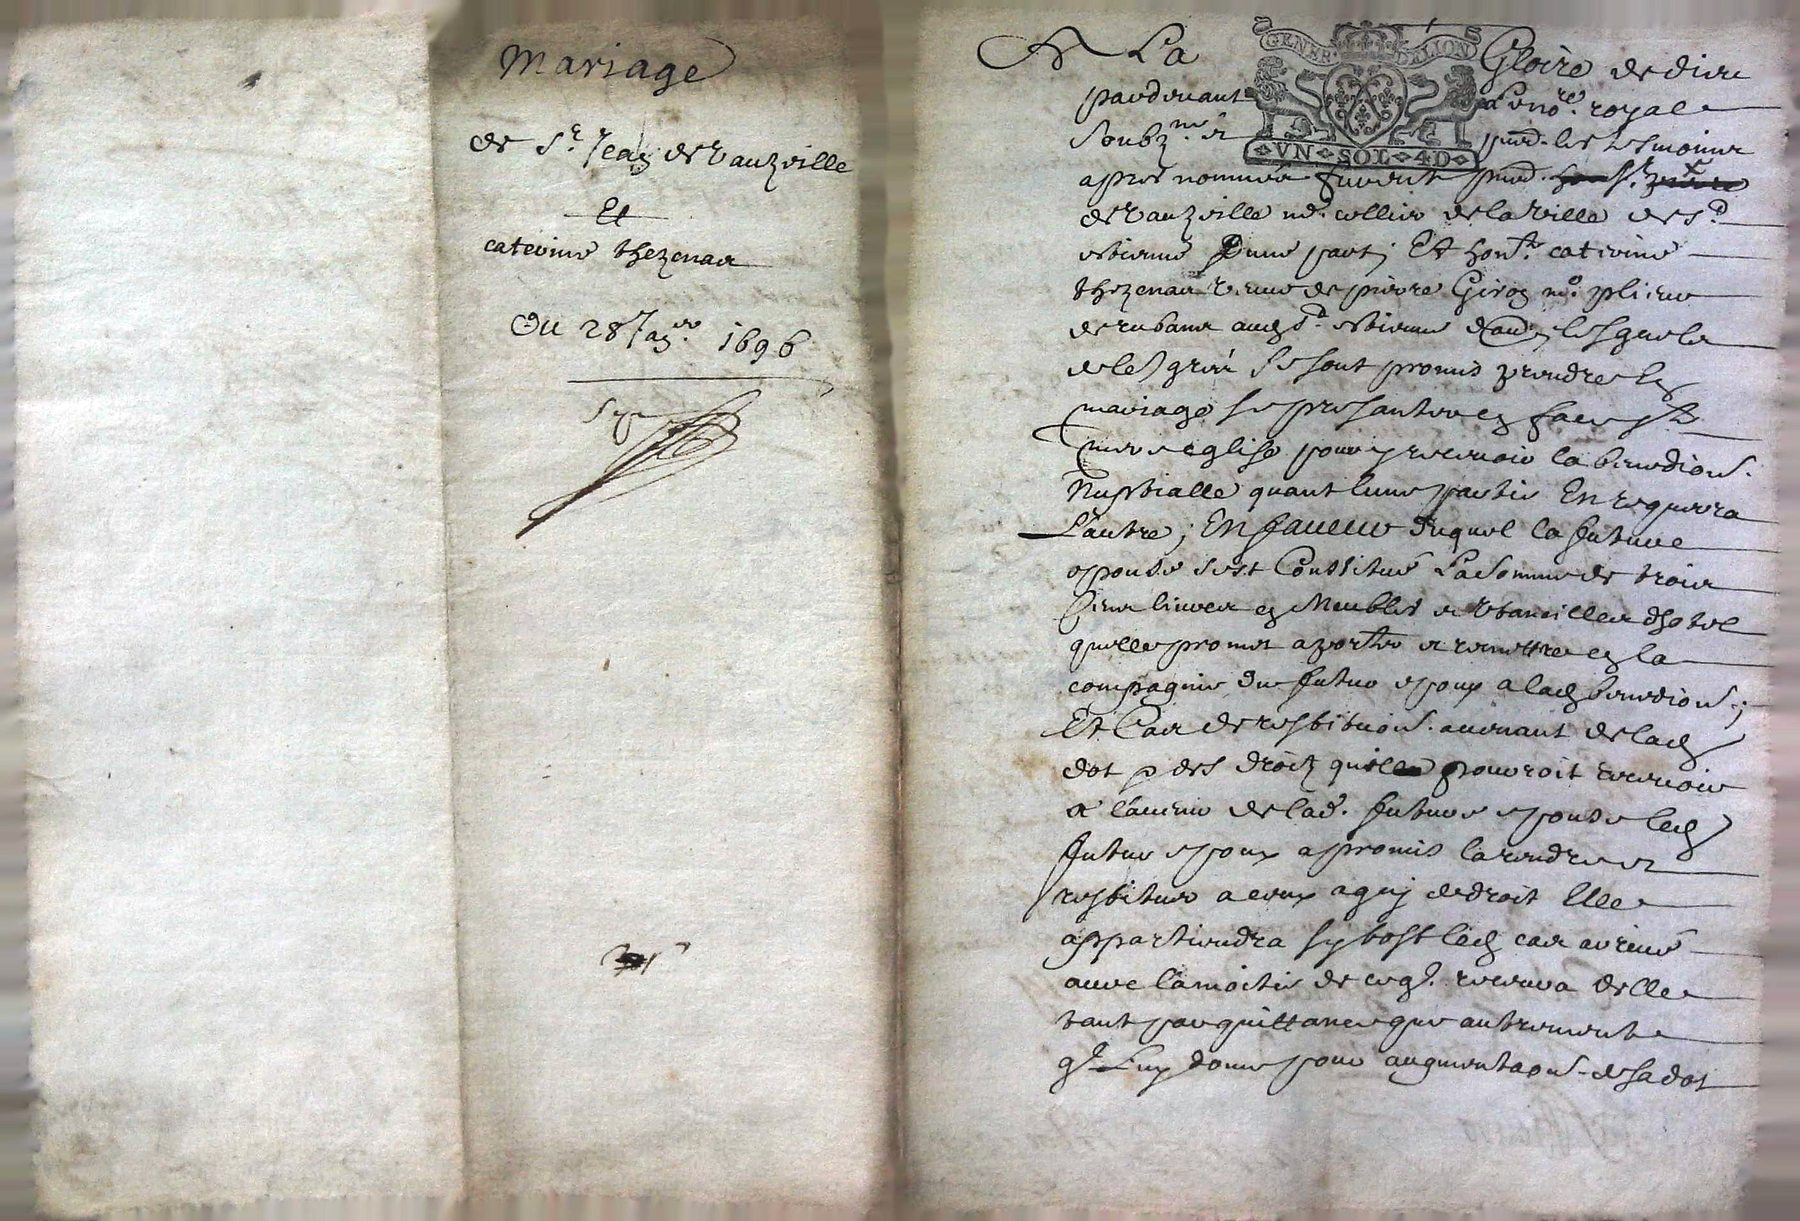 Mariage
de Sr Jean derauzville
Et
caterine thezenar
Du 28 Janer 1696
A La Gloire de dieu
pardevant Le nore royal
Soubzne & pnd. les tesmoins
apres nommes furent pnt. Sr.
derauzville md. collier de la ville de St
estienne d'une part, Et honte. caterine
thezenar veuve de pierre Giron me. plieur
de rubans aud St. estienne d'au, lesquels
de leur gré se sont promis prendre en
mariage se presanter en face ste
mere eglise pour y recevoir la benedion.
Nuptialle quant l'une partie En requerra
L'autre; En faveur duquel la future
espouse s'est Constitué La Somme de trois
livres en Meubles et Utancilles d'hotel
quelle promet aporter et remettre en la
compagnie du futur espoux a lad benedion.;
Et Cas de restituon. avenant de lad
dot p des droitz quelle pouroit recevoir
a l'avenir de lad. future espouse led
futur espoux a promis la rendre et
restituer a ceux a quy de droit Elle
appartiendra sytost led cas arrivé
avec la moitié de ce ql. recevra d'elle
tant par quittance que autrement
ql Luy donne pour augmentaon. de sa dot
GENER. DE LION
VN SOL 4D